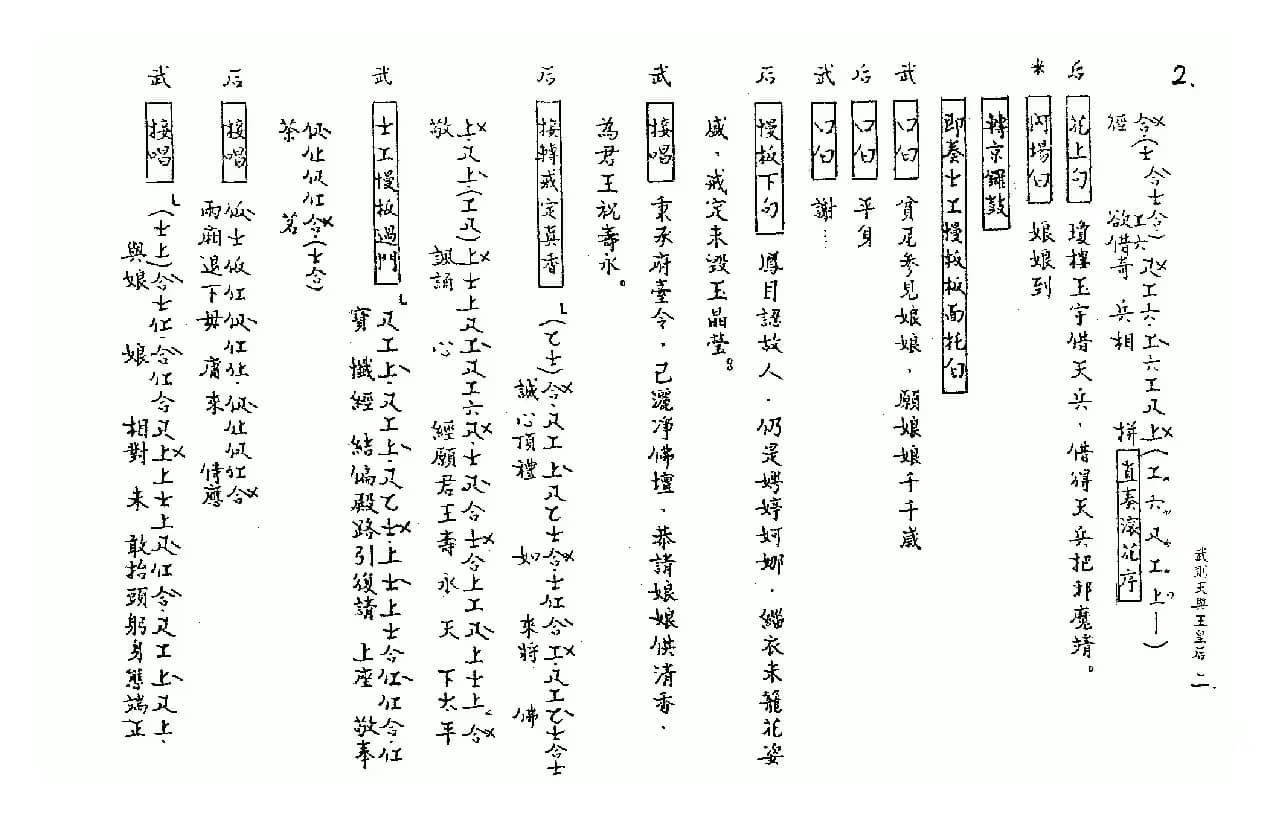 2.
武則天與王皇后 二
合(士合士合)工六凡工六·工六工凡上(工六凡工上—)
經 欲借奇兵相拼 直奏滾花序
后 花上句 瓊樓玉宇借天兵,借得天兵把邪魔靖。
* 內場白 娘娘到
轉京鑼鼓
即奏士工慢板板面托白
武 口白 貧尼參見娘娘,願娘娘千千歲
后 口白 平身
武 口白 謝…
后 慢板下句 鳳目認故人.仍是娉婷婀娜.緇衣未籠花姿
盛,戒定未毀玉晶瑩。
武 接唱 秉承府臺令,已灑净佛壇.恭請娘娘供清香.
為君王祝壽永。
后 接轉戒定真香 (乙士)合·凡工上凡乙士合·士仜合工·凡工乙士合士
誠心頂禮 如來將 佛
上凡上(工凡)上士上凡工凡工六凡·士凡合士合上工凡上士上合
敬 諷誦 心 經願君王壽永天下太平
武 士工慢板過門 凡工上·凡工上凡乙士·上士上士合仜仜合·仜
寶懺經 結偏殿路引復請上座 敬奉
伬仩伬仜合(士合)
茶 茗
后 接唱 伬士伬仜伬仜仩·伬仩伬仜合
兩廂退下毋庸來 侍應
武 接唱 (士上)合士仜·合仜合凡上上士上凡仜合·凡工上凡上·
與娘娘 相對未敢抬頭躬身態端正